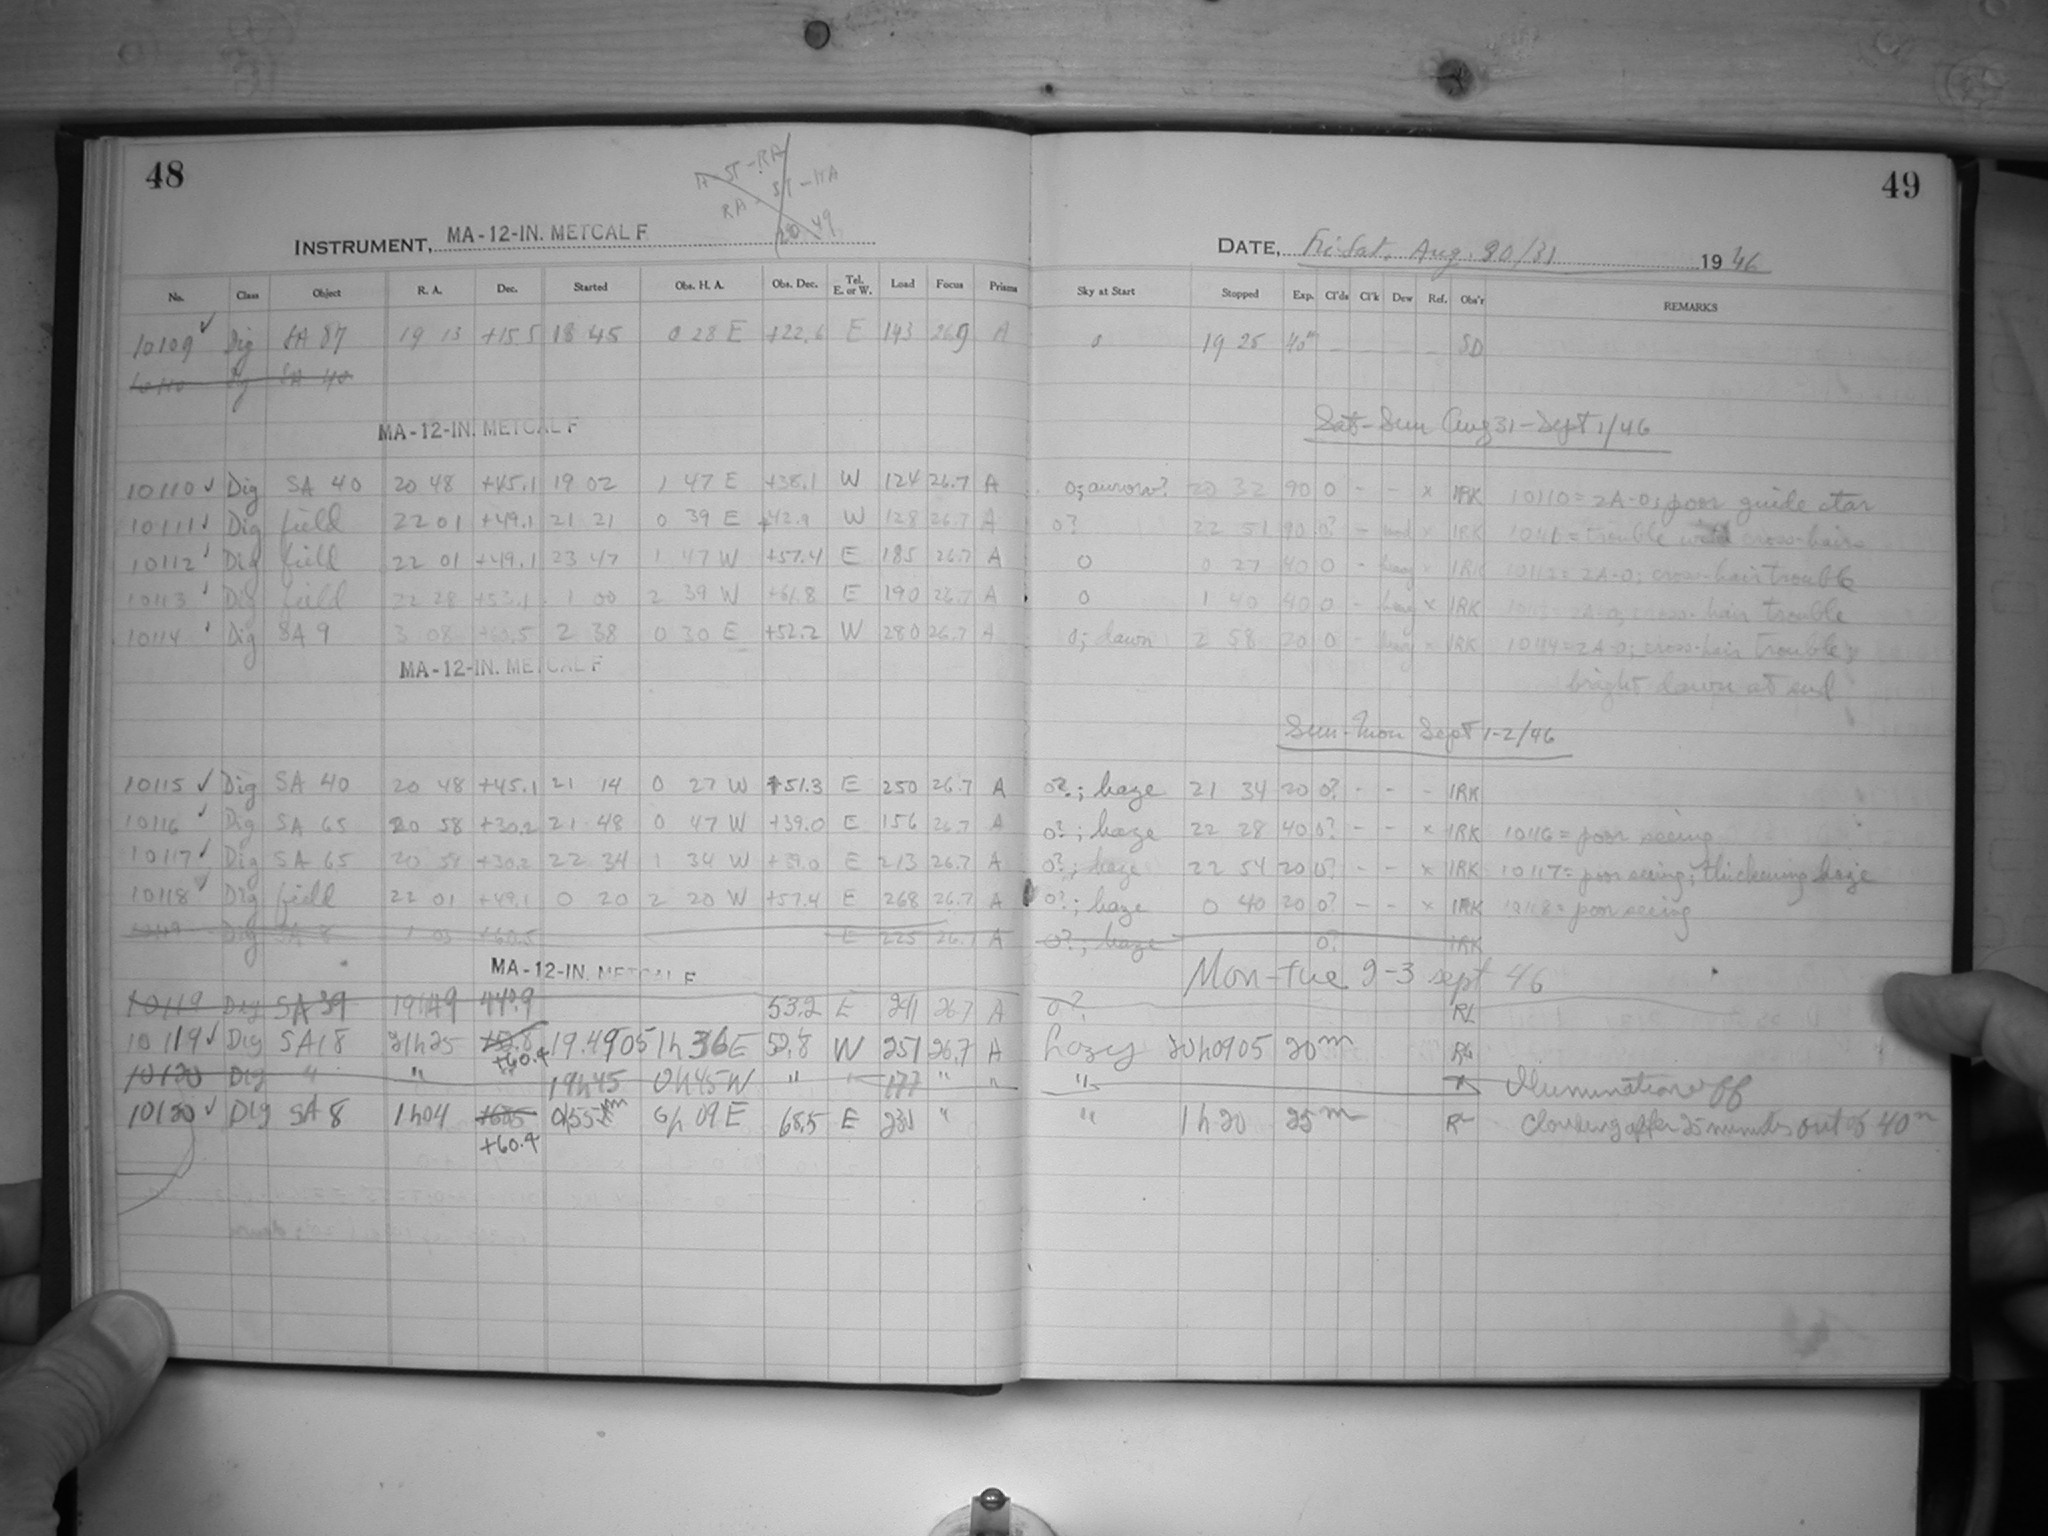 48
49
INSTRUMENT, MA-12-IN. METCALF
DATE, Fri-Sat. Aug. 30/31 1946
No. Class Object R. A. Dec. Started Obs. H. A. Obs. Dec. Tel. E. or W. Load Focus Prisms Sky at Start Stopped Exp. Cl'ds Cl'k Dew Ref. Obs'r REMARKS
10109 ✓ Dig SA 87 19 13 +15.5 18 45 0 28 E +22.6 E 143 26.9 A 0 19 25 40m — — — — SD
10110 Dig SA 40
MA-12-IN. METCALF
Sat-Sun Aug 31-Sept 1/46
10110 ✓ Dig SA 40 20 48 +45.1 19 02 1 47 E +38.1 W 124 26.7 A 0; aurora? 20 32 90 0 - - x IRK 10110 = 2A-0; poor guide star
10111 ✓ Dig field 22 01 +49.1 21 21 0 39 E +42.9 W 128 26.7 A 0? 22 51 90 0? - x IRK = trouble with cross-hairs
10112 ✓ Dig field 22 01 +49.1 23 47 1 47 W +57.4 E 185 26.7 A 0 0 27 40 0 - heavy x IRK 10112 = 2A-0; cross-hair trouble
10113 ✓ Dig field 22 28 +53.1 1 00 2 39 W +61.8 E 190 26.7 A 0 1 40 40 0 - heavy x IRK 10113 = 2A-0; cross-hair trouble
10114 ✓ Dig SA 9 3 08 +60.5 2 38 0 30 E +52.2 W 280 26.7 A 0; dawn 2 58 20 0 - heavy x IRK 10114 = 2A-0; cross-hair trouble &
bright dawn at end
MA-12-IN. METCALF
Sun-Mon Sept 1-2/46
10115 ✓ Dig SA 40 20 48 +45.1 21 14 0 27 W +51.3 E 250 26.7 A 0?; haze 21 34 20 0? - - - IRK
10116 ✓ Dig SA 65 20 58 +30.2 21 48 0 47 W +39.0 E 156 26.7 A 0?; haze 22 28 40 0? - - x IRK 10116 = poor seeing
10117 ✓ Dig SA 65 20 59 +30.2 22 34 1 34 W +39.0 E 213 26.7 A 0?; haze 22 54 20 0? - - x IRK 10117 = poor seeing; thickening haze
10118 ✓ Dig field 22 01 +49.1 0 20 2 20 W +57.4 E 268 26.7 A 0?; haze 0 40 20 0? - - x IRK 10118 = poor seeing
10119 Dig SA 8 1 03 +60.5 E 225 26.7 A 0?; haze 0? IRK
MA-12-IN. METCALF
Mon-Tue 2-3 sept 46
10119 Dig SA 39 19h49 44.9 53.2 E 241 26.7 A 0? RL
10119 ✓ Dig SA 18 21h25 +60.4 19.4905 1h 36 E 52.8 W 251 26.7 A hazy 20h0905 20m RL
10120 Dig " " 19h45 0h45W " " 177 " " " Illumination off
10120 ✓ Dig SA 8 1h04 +60.5 0h55m 0h 09 E 68.5 E 231 " " 1h20 25m RL Clouding after 25 minutes out of 40m
+60.4